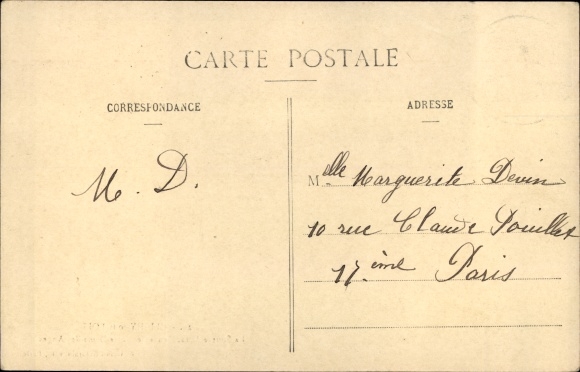 CARTE POSTALE
CORRESPONDANCE
ADRESSE
M. D.
Melle Marguerite Devin
10 rue Claude Pouillet
17ème Paris